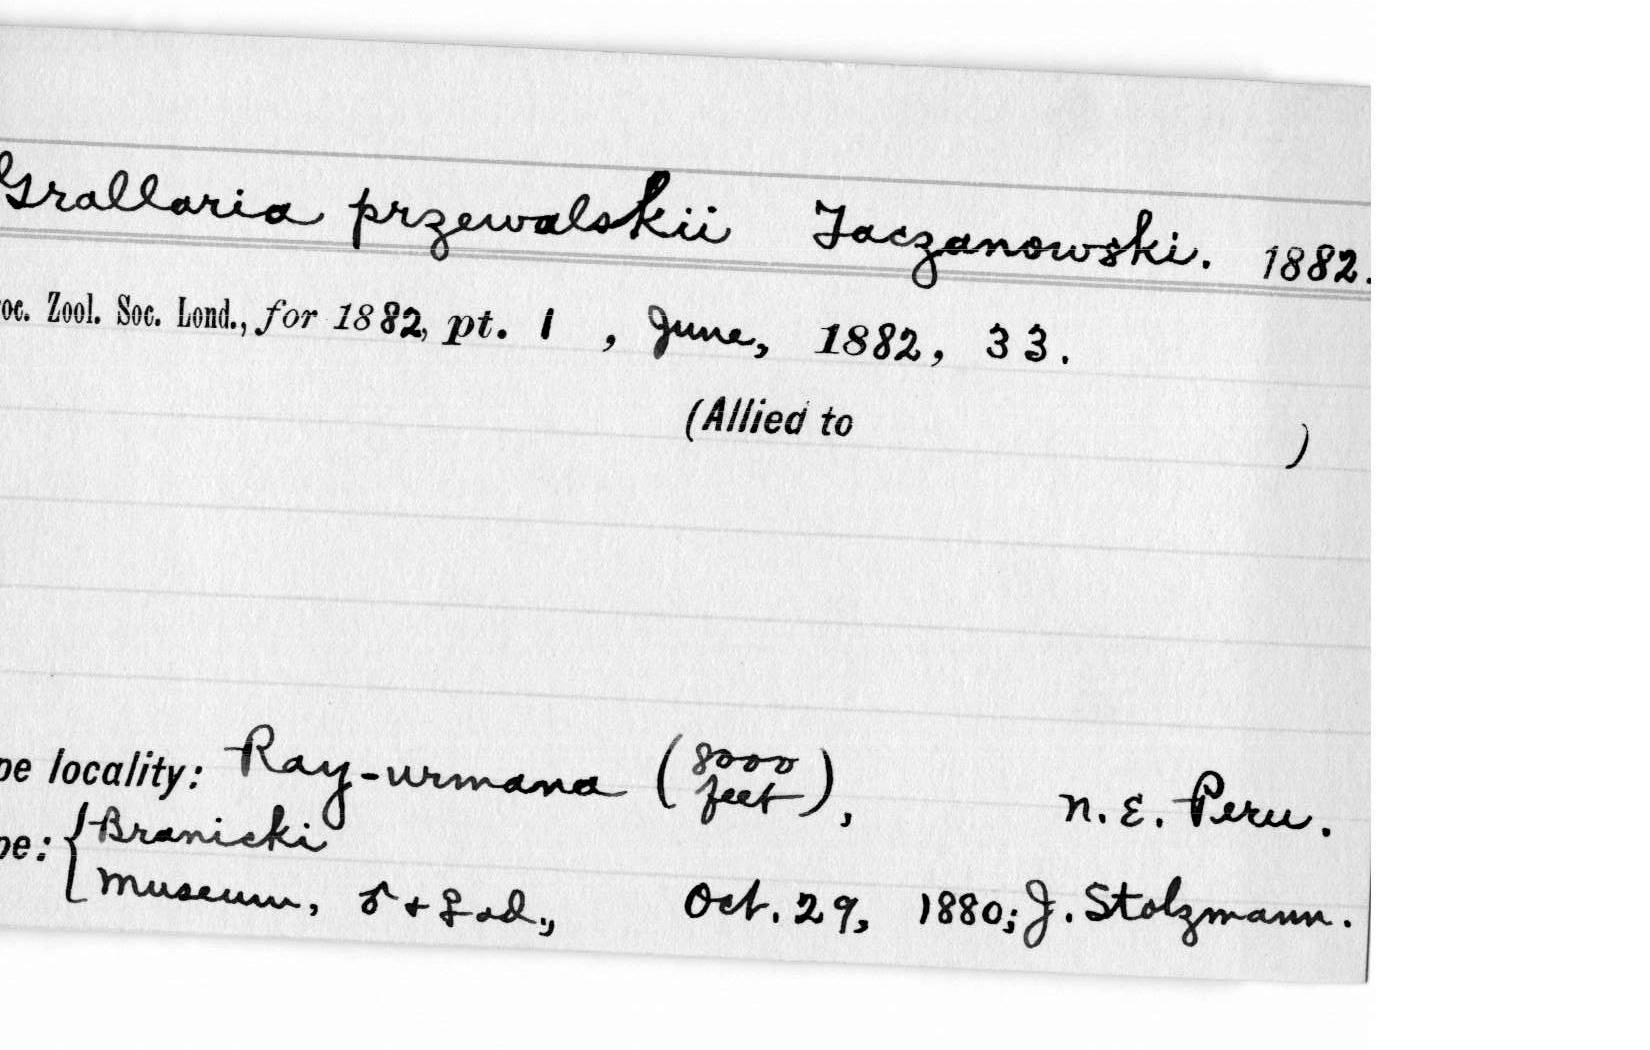 Grallaria przewalskii Taczanowski. 1882.
oc. Zool. Soc. Lond., for 1882, pt. 1 , June, 1882, 33.
(Allied to )
pe locality: Ray-urmana (8000 feet), N. E. Peru.
pe: {Branicki
Museum, ♂ + ♀ ad., Oct. 29, 1880; J. Stolzmann.